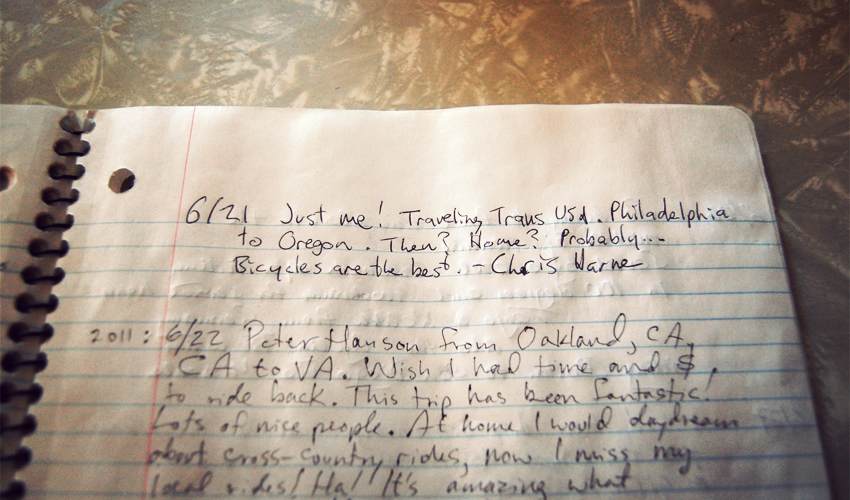 6/21 Just me! Traveling Trans USA. Philadelphia
to Oregon. Then? Home? Probably...
Bicycles are the best. - Chris Warne
2011: 6/22 Peter Hanson from Oakland, CA,
CA to VA. Wish I had time and $,
to ride back. This trip has been fantastic!
Lots of nice people. At home I would daydream
about cross-country rides, now I miss my
local rides! Ha! It's amazing what